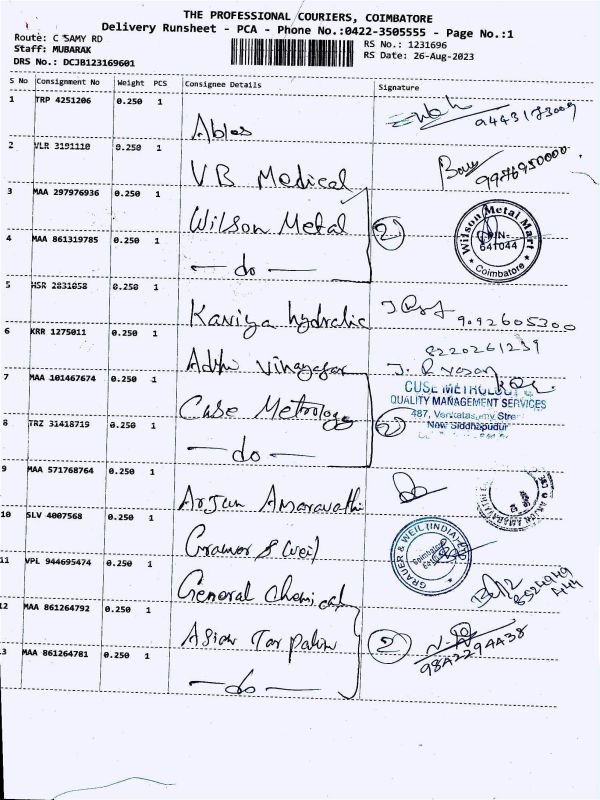 THE PROFESSIONAL COURIERS, COIMBATORE
Delivery Runsheet - PCA - Phone No.:0422-3505555 - Page No.:1
Route: C SAMY RD
RS No.: 1231696
Staff: MUBARAK
RS Date: 26-Aug-2023
DRS No.: DCJB123169601
S No Consignment No Weight PCS Consignee Details Signature
1 TRP 4251206 0.250 1 Ables
2 VLR 3191110 0.250 1 VB Medical 9946950000
3 MAA 297976936 0.250 1 Wilson Metal 2 Wilson Metal Mart 641044 Coimbatore
4 MAA 861319785 0.250 1 — do —
5 HSR 2831058 0.250 1 Kaviya hydralic 9092605300
6 KRR 1275011 0.250 1 Adhi Vinayagar 8220261239
7 MAA 101467674 0.250 1 Case Metrology 2
CUSE METROLOGY
QUALITY MANAGEMENT SERVICES
487, Venkatasamy Stre
New Siddhapudur
8 TRZ 31418719 0.250 1 — do —
9 MAA 571768764 0.250 1 Arjun Amaravathi
10 SLV 4007568 0.250 1 GRAUER & WEIL (INDIA) LTD Coimbatore
11 VPL 944695474 0.250 1 General Chemical
12 MAA 861264792 0.250 1 Asian Tarpalin 2
13 MAA 861264781 0.250 1 — do —